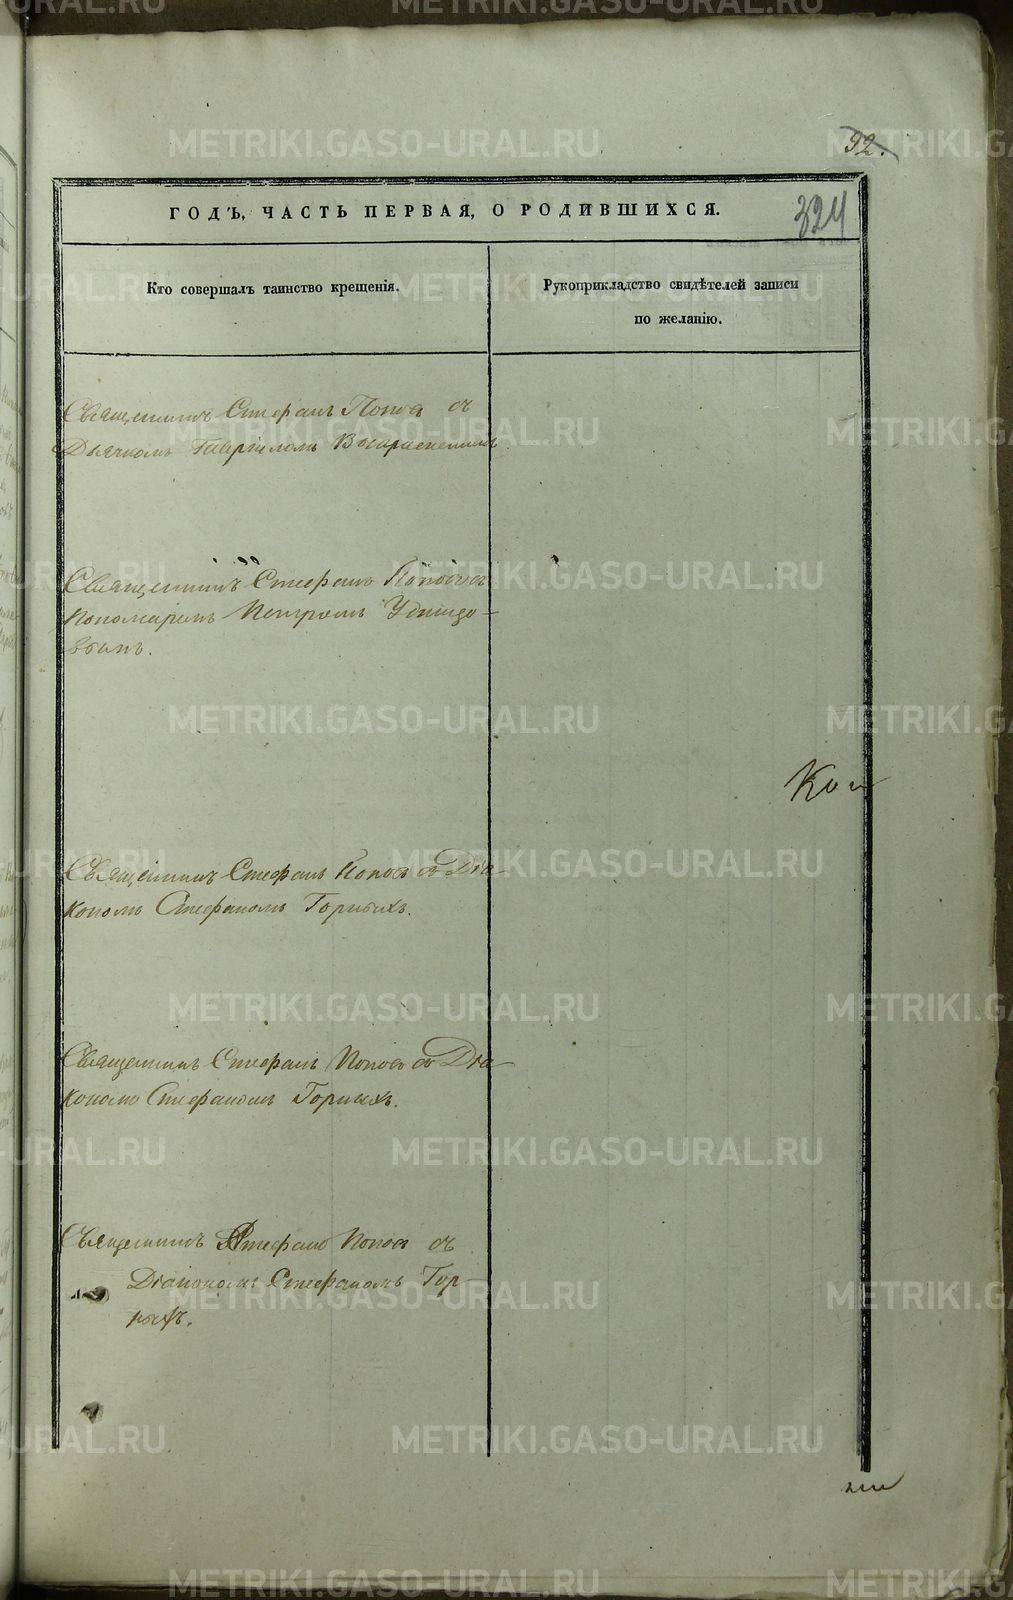 92.
ГОДЪ, ЧАСТЬ ПЕРВАЯ, О РОДИВШИХСЯ.
324
Кто совершалъ таинство крещенія.
Рукоприкладство свидѣтелей записи
по желанію.
Священникъ Стефанъ Поповъ съ
Дьячкомъ Гавріиломъ
Священникъ Стефанъ Поповъ съ
Пономаремъ Петромъ Удинцо-
вымъ.
Ко
Священникъ Стефанъ Поповъ съ Діа-
кономъ Стефаномъ Горныхъ.
Священникъ Стефанъ Поповъ съ Діа-
кономъ Стефаномъ Горныхъ.
Священникъ Стефанъ Поповъ съ
Діакономъ Стефаномъ Гор-
ныхъ.
METRIKI.GASO-URAL.RU